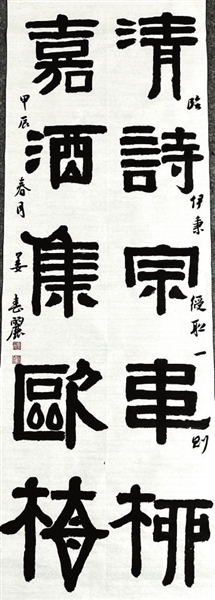 臨伊秉綬聯一則
清詩宗韋柳
嘉酒集歐梅
甲辰春月姜惠麗